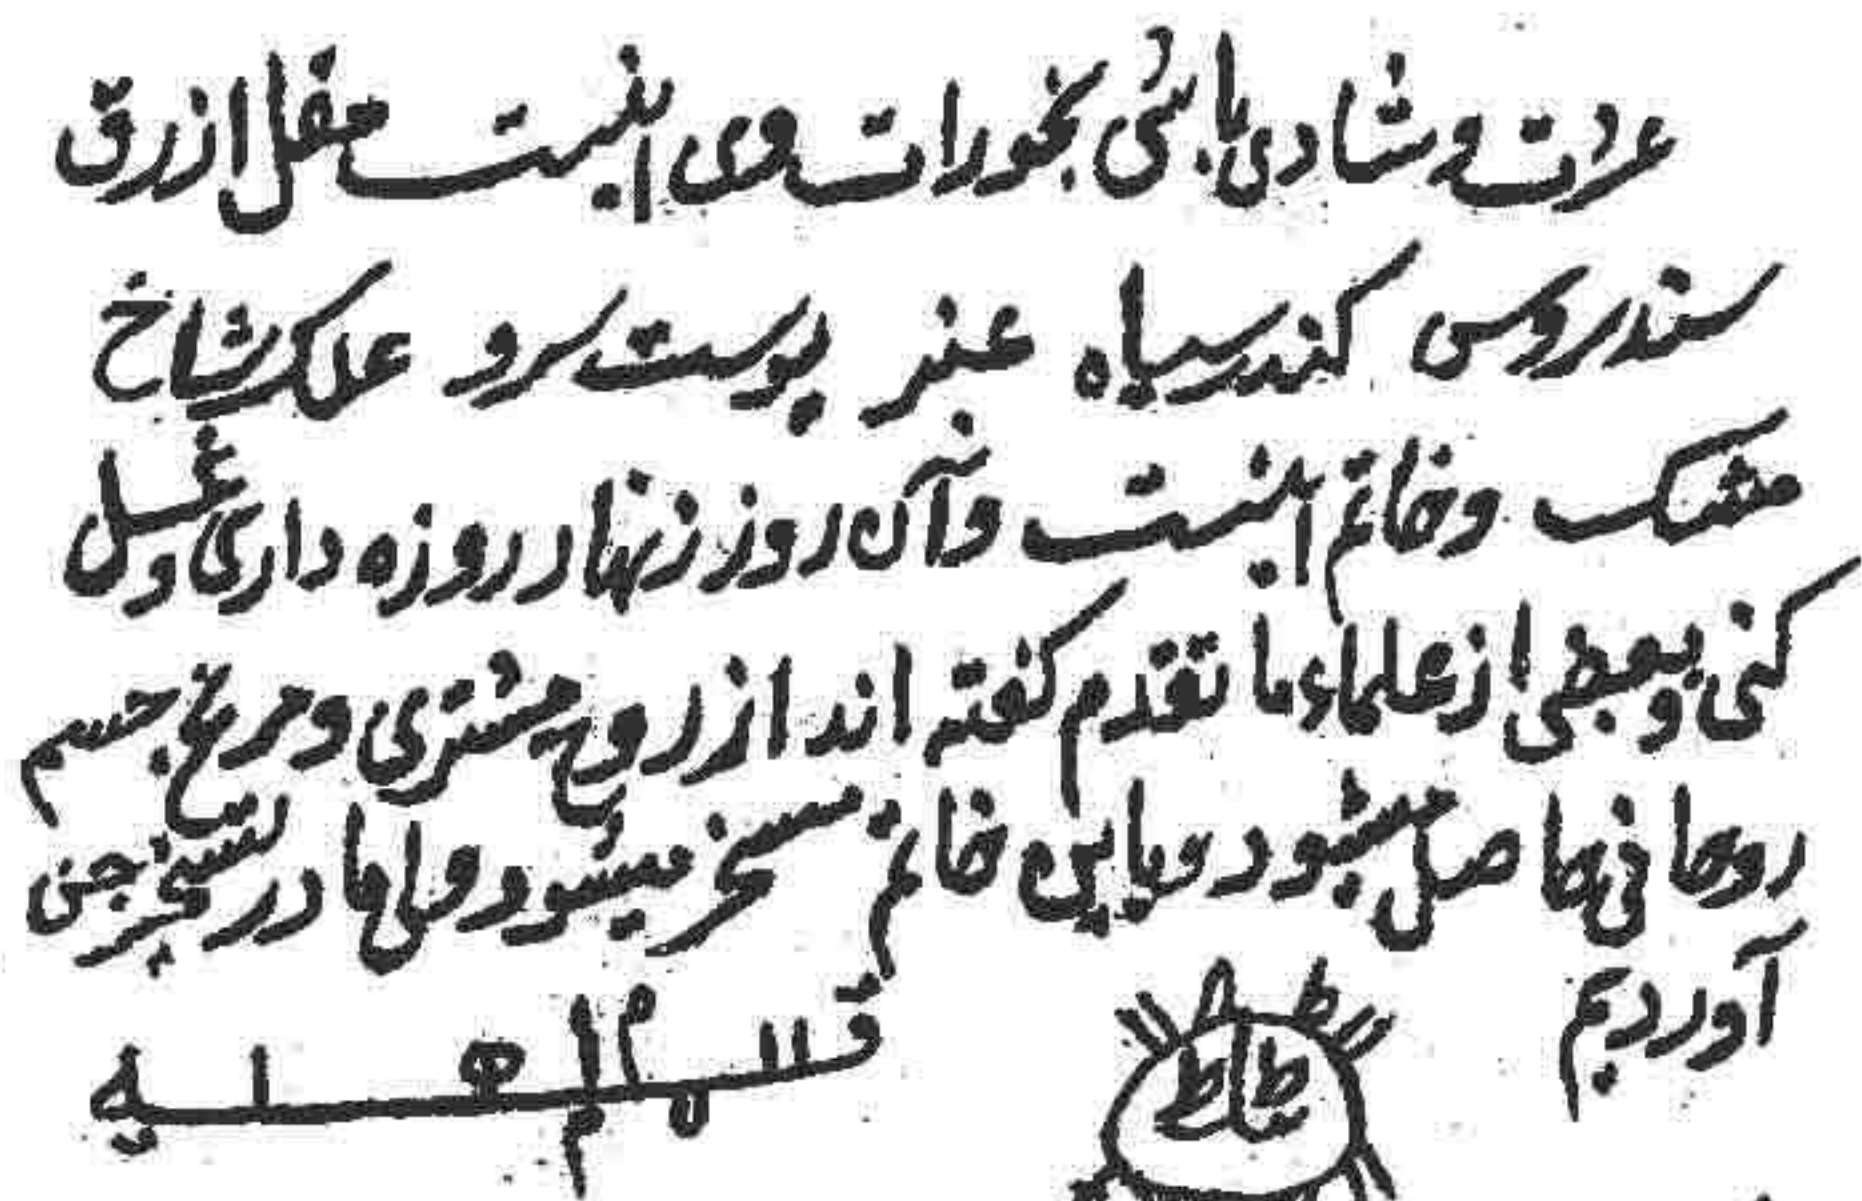 عزت و شادی باشی بخورات وی اینست مقل ازرق
سندروس کندر سیاه عنبر پوست سرو علک شاخ
مشک وخاتم اینست وآن روز زنهار روزه داری و غسل
کنی و بعضی از علماء ما تقدم گفته اند از روح مشتری و مریخ جسم
روحانی حاصل میشود و باین خاتم مسخر میشود ولی ما در تسخیر جن
آوردیم